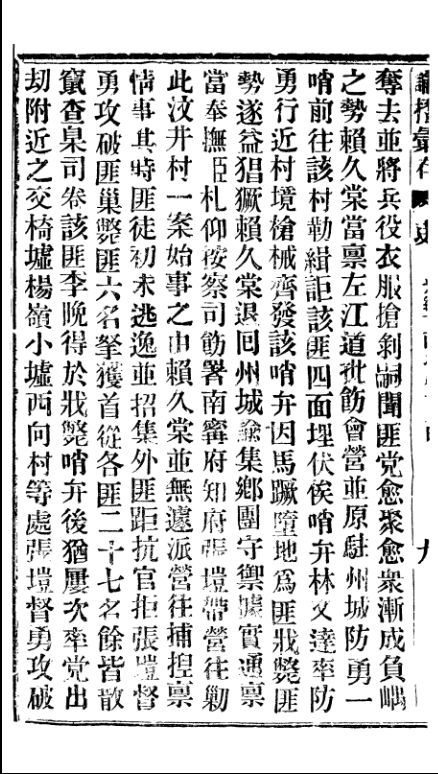 諭摺彙存
九
奪去並將兵役衣服搶剝嗣聞匪党愈聚愈衆漸成負嵎
之勢賴久棠當禀左江道批飭會營並原駐州城防勇一
哨前往該村勒緝詎該匪四面埋伏俟哨弁林文達率防
勇行近村境槍械齊發該哨弁因馬蹶墮地爲匪戕斃匪
勢遂益猖獗賴久棠退囘州城諭集鄉團守禦據實通禀
當奉撫臣札仰按察司飭署南寗府知府張塏帶營往勦
此汶井村一案始事之由賴久棠並無遽派營往捕揑禀
情事其時匪徒初未逃逸並招集外匪距抗官拒張塏督
勇攻破匪巢斃匪六名拏獲首從各匪二十七名餘皆散
竄查臬司卷該匪李晚得於戕斃哨弁後猶屢次率党出
刧附近之交椅墟楊嶺小墟西向村等處張塏督勇攻破